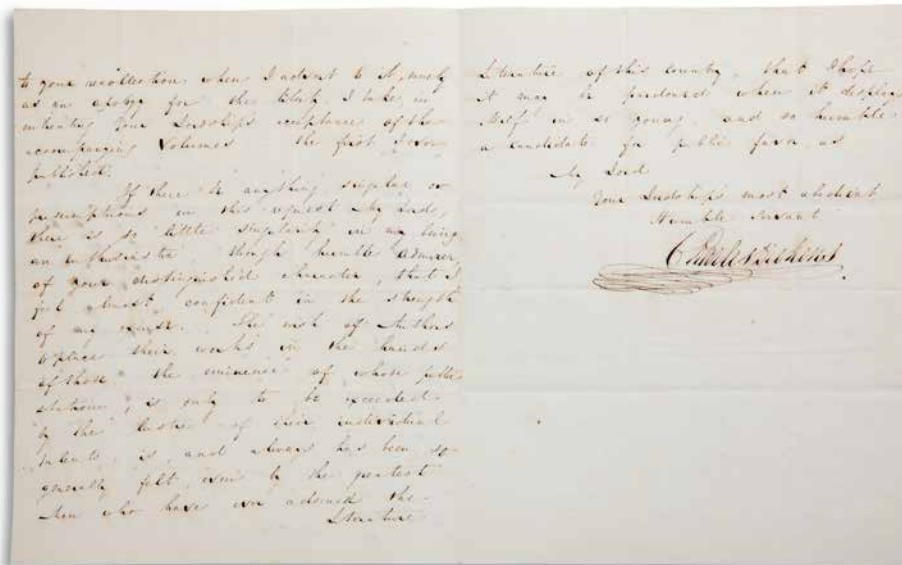 to your recollection when I advert to it, merely
as an apology for the liberty I take, in
entreating your Lordship's acceptance of the
accompanying Volumes the first I ever
published.
If there be anything singular or
presumptuous in this request My Lord,
there is so little singularity in my being
an enthusiastic though humble admirer
of your distinguished character, that I
feel almost confident in the strength
of my excuse. The wish of Authors
to place their works in the hands
of those, the eminence of whose public
stations, is only to be exceeded
by the lustre of their individual
talents, is, and always has been so
generally felt, even by the greatest
Men who have ever adorned the
Literature
Literature of this country, that I hope
it may be pardoned when it displays
itself in so young, and so humble
a candidate for public favor, as
My Lord
Your Lordship's most obedient
Humble Servant
Charles Dickens